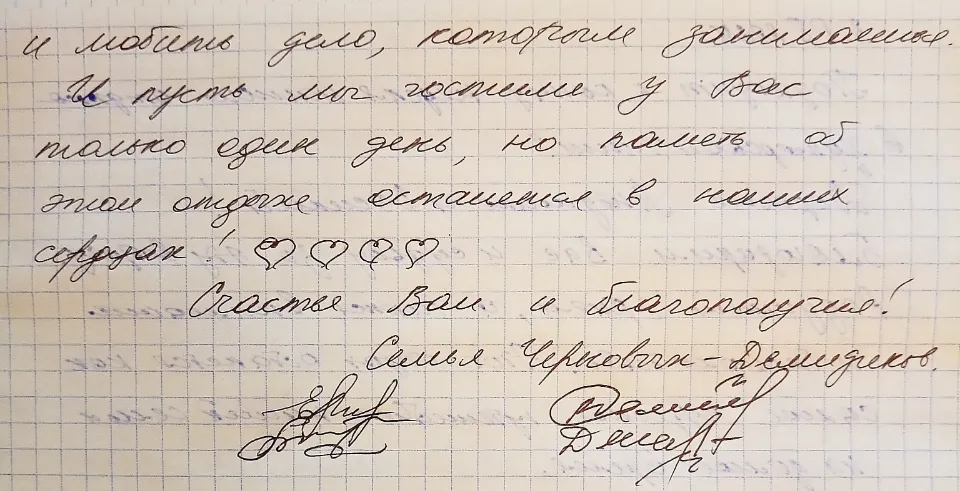 и любить дело, которым занимаетесь.
И пусть мы гостили у Вас
только один день, но память об
этом отдыхе останется в наших
сердцах!
Счастья Вам и благополучия!
Семья Черновых - Демидиков.